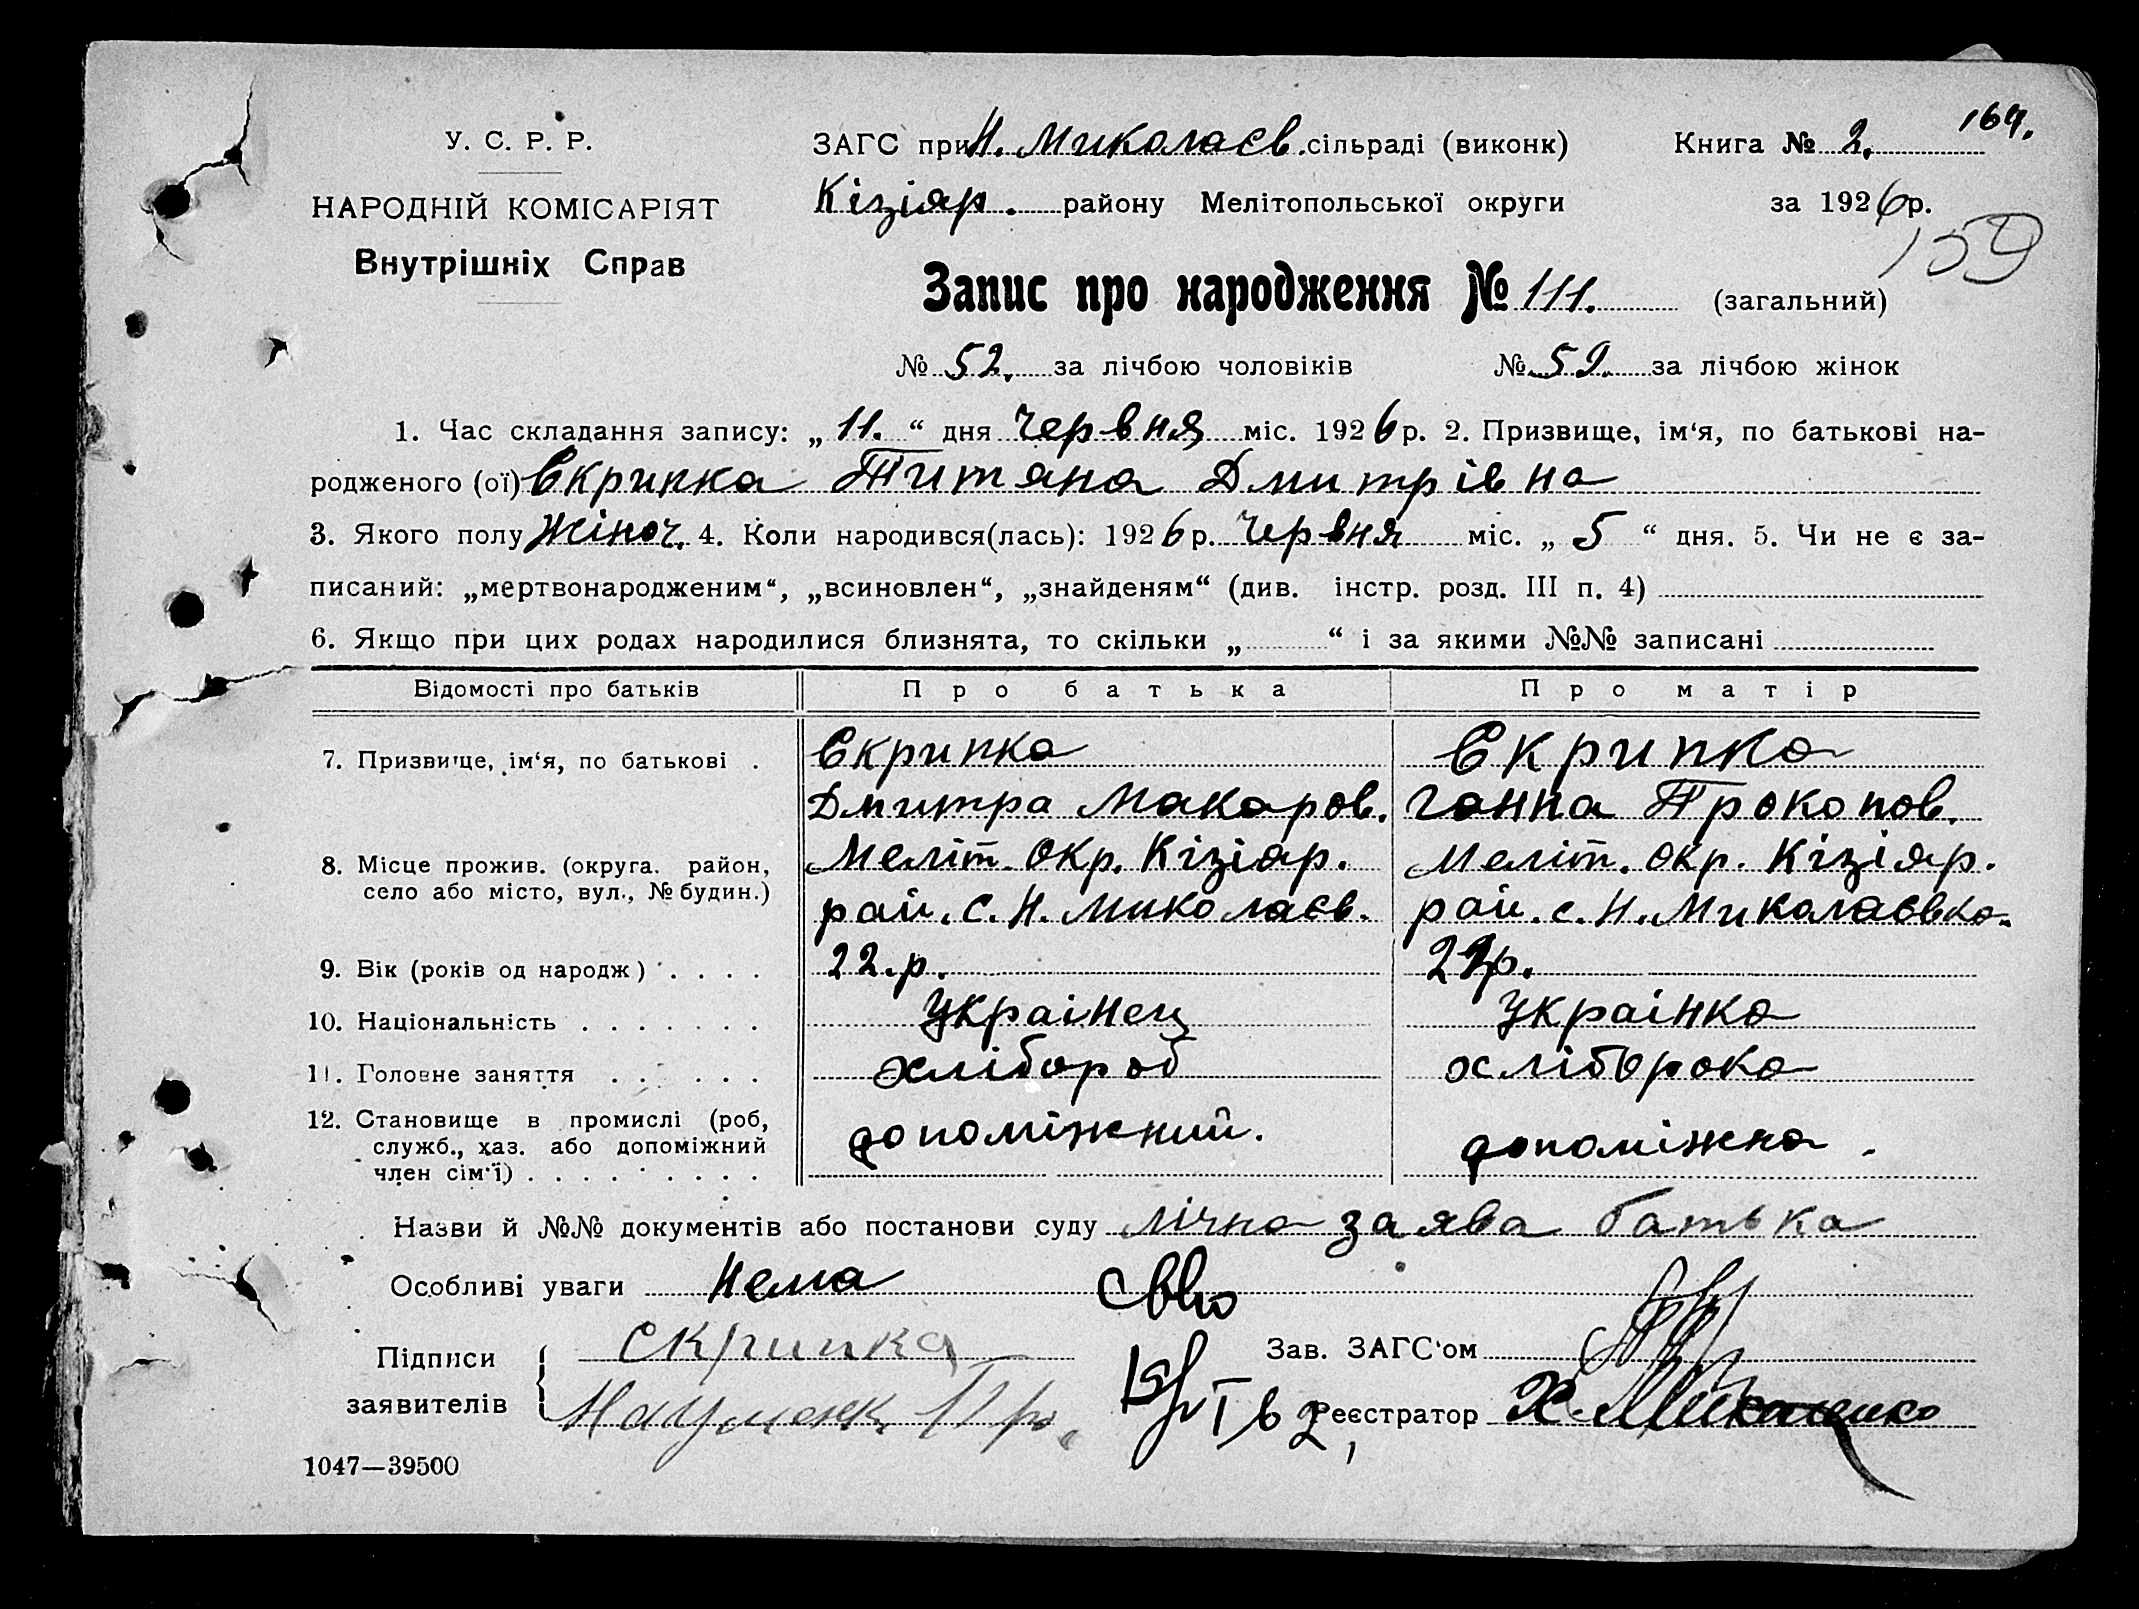 164.
У. С. Р. Р.
НАРОДНІЙ КОМІСАРІЯТ
Внутрішніх Справ
ЗАГС при Н. Миколаєв. сільраді (виконк)
Кізіяр. району Мелітопольської округи
Книга № 2.
за 1926 р.
159
Запис про народження № 111. (загальний)
№ 52. за лічбою чоловіків № 59. за лічбою жінок
1. Час складання запису: „ 11. “ дня червня міс. 1926 р. 2. Призвище, ім‘я, по батькові на-
родженого (ої) Скрипка Титяна Дмитрівна
3. Якого полу жіноч. 4. Коли народився(лась): 1926 р. червня міс. „ 5 “ дня. 5. Чи не є за-
писаний: „мертвонародженим“, „всиновлен“, „знайденям“ (див. інстр. розд. III п. 4)
6. Якщо при цих родах народилися близнята, то скільки „ “ і за якими №№ записані
Відомості про батьків Про батька Про матір
7. Призвище, ім‘я, по батькові .
Скрипка
Дмитра Макаров.
Скрипка
Ганна Прокопов.
8. Місце прожив. (округа. район,
село або місто, вул., № будин.)
Меліт. окр. Кізіяр.
рай. с. Н. Миколаєв.
Меліт. окр. Кізіяр.
рай. с. Н. Миколаєвка.
9. Вік (років од народж) . . . . 22.р.
10. Національність . . . . . . . Українец Українка
11. Головне заняття . . . . . . хлібороб хліборока
12. Становище в промислі (роб,
служб., хаз. або допоміжний
член сім‘ї) . . . . . . . .
допоміжний.
допоміжна.
Назви й №№ документів або постанови суду лічна заява батька
Особливі уваги нема
Підписи
заявителів
Скрипка
Зав. ЗАГС‘ом
Реєстратор
1047—39500